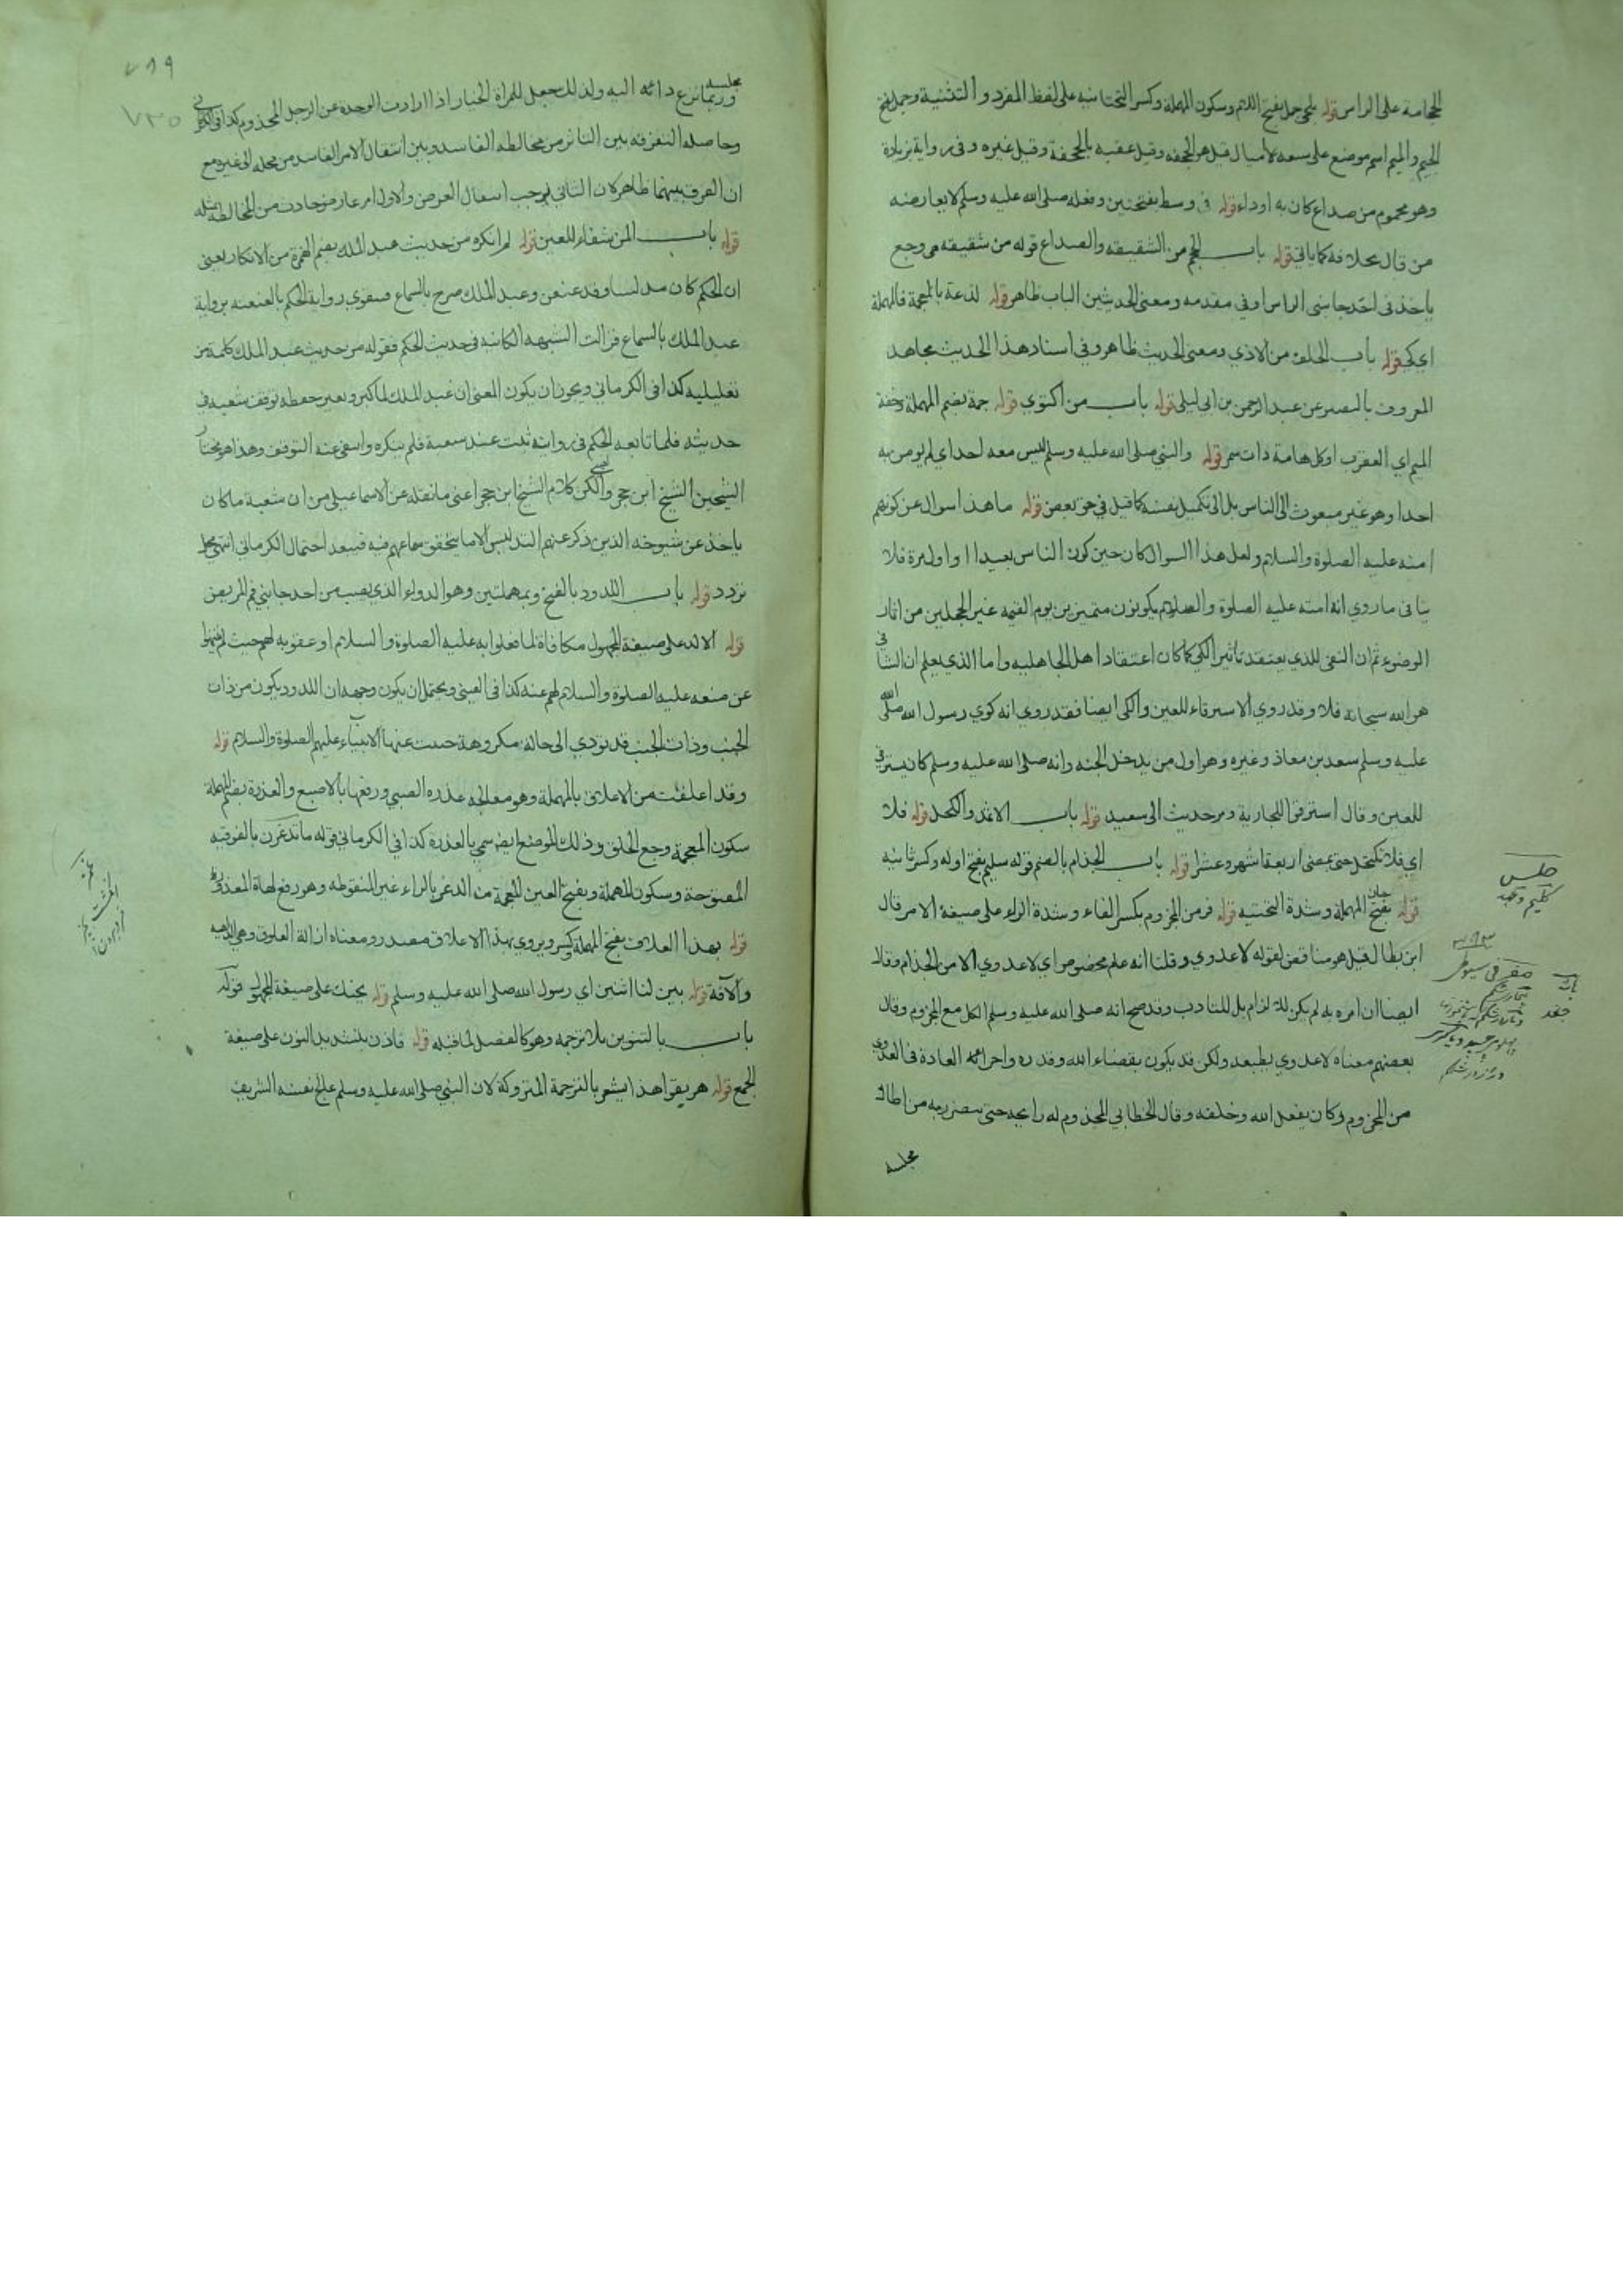 الحجامة على الراس قوله بلحي جمل بفتح اللام وسكون المهملة وكسر التحتانية على لفظ المفرد والتثنية وجمل بفتح
الجيم والميم اسم موضع على سبعة اميال قيل هو الجحفه وقيل عقبه بالجحفة وقيل غيره وفي رواية بزيادة
وهو محموم من صداع كان به او داء قوله في وسط بفتحتين وفعله صلى الله عليه وسلم لا يعارضه
من قال بخلافه كما ياتي قوله باب الحجم من الشقيقه والصداع قوله من شقيقه هي وجع
ياخذ في احد جانبي الراس او في مقدمه ومعنى الحديثين الباب ظاهر قوله لذعة بالمعجمة فالمهملة
اي كي قوله باب الحلق من الاذي ومعنى الحديث ظاهر وفي اسناد هذا الحديث مجاهد
المعروف بالتفسير عن عبد الرحمن بن ابي ليلى قوله باب من اكتوي قوله حمة بضم المهملة وخفة
الميم اي العقرب او كل هامة ذات سم قوله والنبي صلى الله عليه وسلم ليس معه احد اي لم يومن به
احدا وهو غير مبعوث الى الناس بل الى تكميل نفسه كما قيل في حق بعض قوله ما هذا سوال عن كونهم
امته عليه الصلوة والسلام ولعل هذا السوال كان حين كون الناس بعيدا او اول مرة فلا
ينافي ما روي انه امته عليه الصلوة والسلام يكونون متميزين يوم القيمه غير المحجلين من اثار
الوضوء ثم ان النهي للذي يعتقد تاثير الكي كما كان اعتقاد اهل الجاهلية واما الذي يعلم ان الشافي
هو الله سبحانه فلا وقد روي الاسترقاء للعين والكي ايضا فقد روي انه كوي رسول الله صلى الله
عليه وسلم سعد بن معاذ وغيره وهو اول من يدخل الجنه وانه صلى الله عليه وسلم كان يسترقي
للعين وقال استرقوا للجارية ومر حديث ابي سعيد قوله باب الاثمد والكحل قوله فلا
اي فلا تكتحل حتى يمضي اربعة اشهر وعشرا قوله باب الجذام بالضم قوله سليم بفتح اوله وكسر ثانيه
قوله حيان بفتح المهملة وشدة التحتية قوله فر من المجذوم بكسر الفاء وشدة الراء على صيغة الامر قال
ابن بطال قيل هو مناقض لقوله لا عدوي وقلنا انه عام مخصوص اي لا عدوي الا من الجذام وقال
ايضا ان امره به لم يكن للالزام بل للتادب وقد صح انه صلى الله عليه وسلم اكل مع المجذوم وقال
بعضهم معناه لا عدوي بطبعه ولكن قد يكون بقضاء الله وقدره واجرائه العادة فالعدوي
من المجذوم وكان بفعل الله وخلقه وقال الخطابي المجذوم له رايحه حتى يضر به من اطال
مجلسه
مجلسه وربما نزع داءه اليه ولذلك جعل للمراة الخيار اذا ارادت الوحده عن الرجل المجذوم كذا في الكرماني
وحاصله التفرقه بين التاثر من مخالطه الفاسد وبين انتقال الامر الفاسد من محله الى غيره مع
ان الفرق بينهما ظاهر لان الثاني يوجب انتقال العرض والاول امر عارض حادث من المخالطه
قوله باب المن شفاء للعين قوله لم انكره من حديث عبد الملك بضم الهمزة من الانكار يعني
ان الحكم كان مدلسا وقد عنعن وعبد الملك صرح بالسماع فيقوي رواية الحكم بالعنعنه برواية
عبد الملك بالسماع فزالت الشبهه الكائنه في حديث الحكم فقوله من حديث عبد الملك كلمة من
تعليليه كذا في الكرماني ويجوز ان يكون المعنى ان عبد الملك لما كبر وتغير حفظه توقف شعبه في
حديثه فلما تابعه الحكم في روايته ثبت عند شعبة فلم ينكره وانتفى عنه التوقف وهذا هو مختار
الشيخين الشيخ ابن حجر والعيني لكن كلام الشيخ ابن حجر اعني ما نقله عن الاسماعيلي من ان شعبة ما كان
ياخذ عن شيوخه الذين ذكر عنهم التدليس الا ما يتحقق سماعهم فيه فيبعد احتمال الكرماني انتهى محل
تردد قوله باب اللدود بالفتح وبمهملتين وهو الدواء الذي يصب من احد جانبي فم المريض
قوله الا لد على صيغة المجهول مكافاة لما فعلوا به عليه الصلوة والسلام او عقوبه لهم حيث لم ينتهوا
عن منعه عليه الصلوة والسلام لهم عنه كذا في العيني ويحتمل ان يكون وجهه ان اللدود يكون من ذات
الجنب وذات الجنب قد تودي الى حالة مكروهة حميت عنها الانبياء عليهم الصلوة والسلام قوله
وقد اعلقت من الاعلاق بالمهملة وهو معالجه عذره الصبي ورفعها بالاصبع والعذرة بضم المهملة
سكون المعجمة وجع الحلق وذلك الموضع ايضا سمي بالعذرة كذا في الكرماني قوله ما تدغرن بالفوقيه
المفتوحة وسكون المهملة وبفتح العين المعجمة من الدغر بالراء غير المنقوطه وهو رفع لهاة المعذور
قوله بهذا العلاق بفتح المهملة وكسر ويروي بهذا الاعلاق مصدر ومعناه ازالة العلوق وهي الداهيه
والافة قوله بين لنا اثنين اي رسول الله صلى الله عليه وسلم قوله يحنك على صيغة المجهول قوله
باب بالتنوين بلا ترجمه وهو كالفصل لما قبله قوله فاذن بتشديد النون على صيغة
الجمع قوله هريقوا هذا يشعر بالترجمة المتروكة لان النبي صلى الله عليه وسلم عالج نفسه الشريف